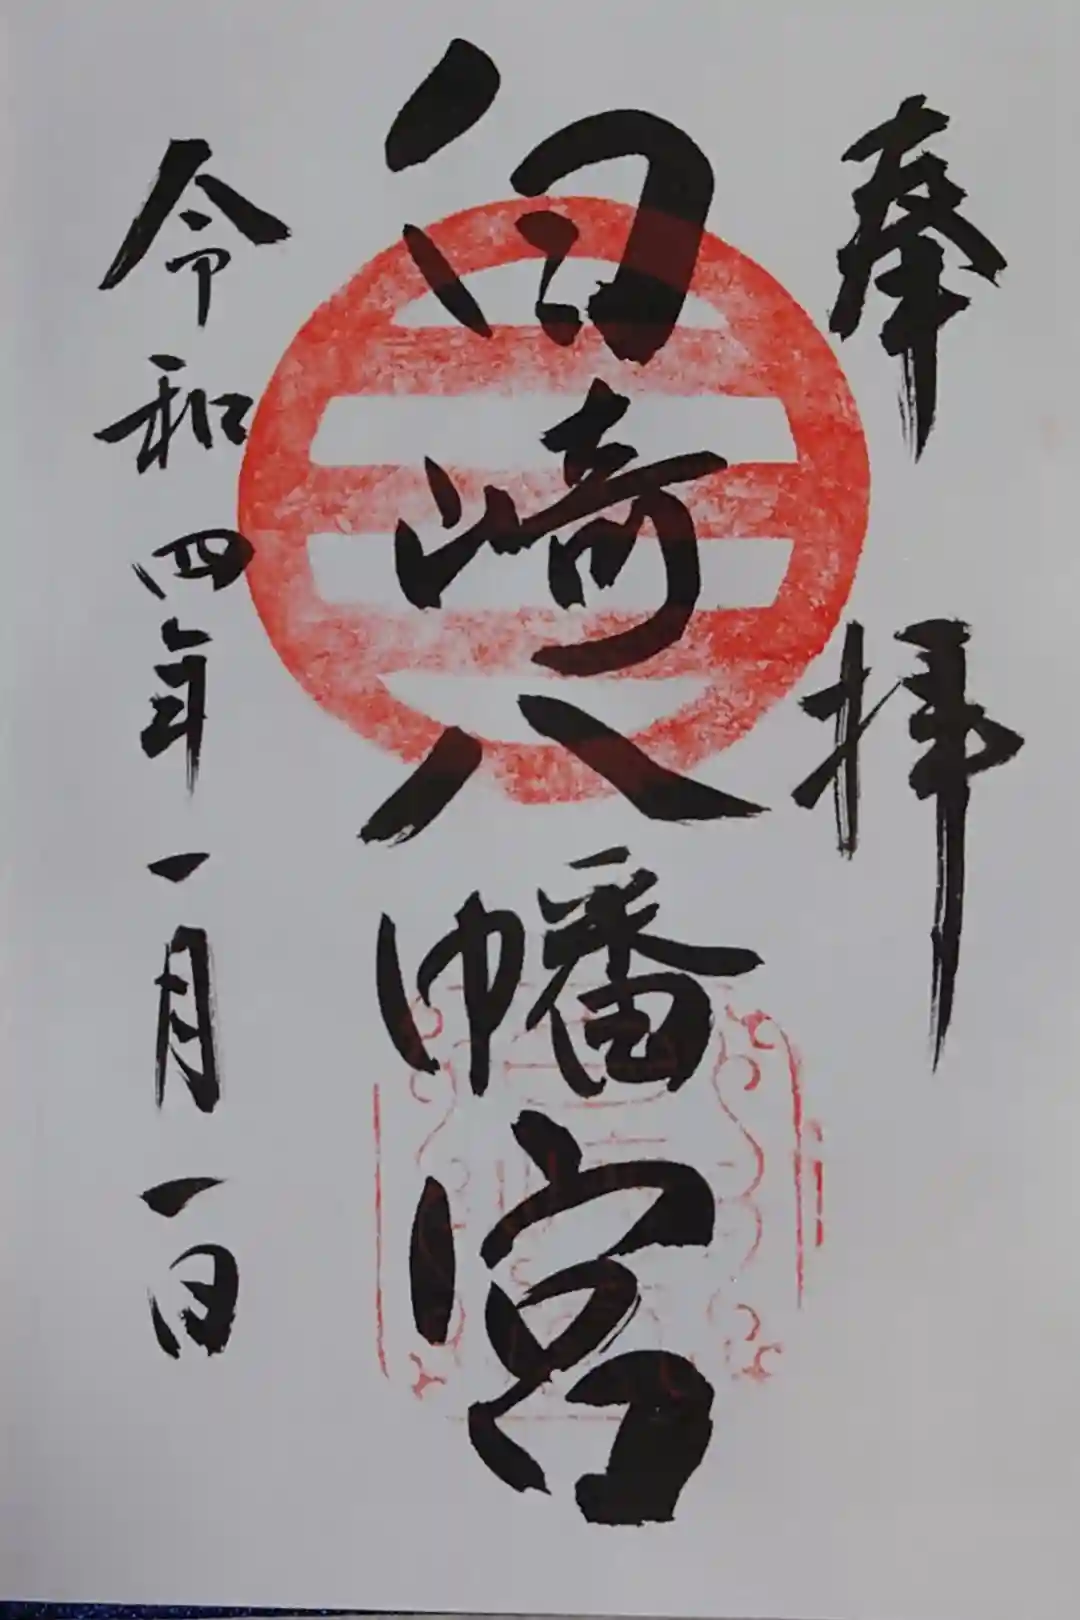 奉拝
白崎八幡宮
令和四年一月一日